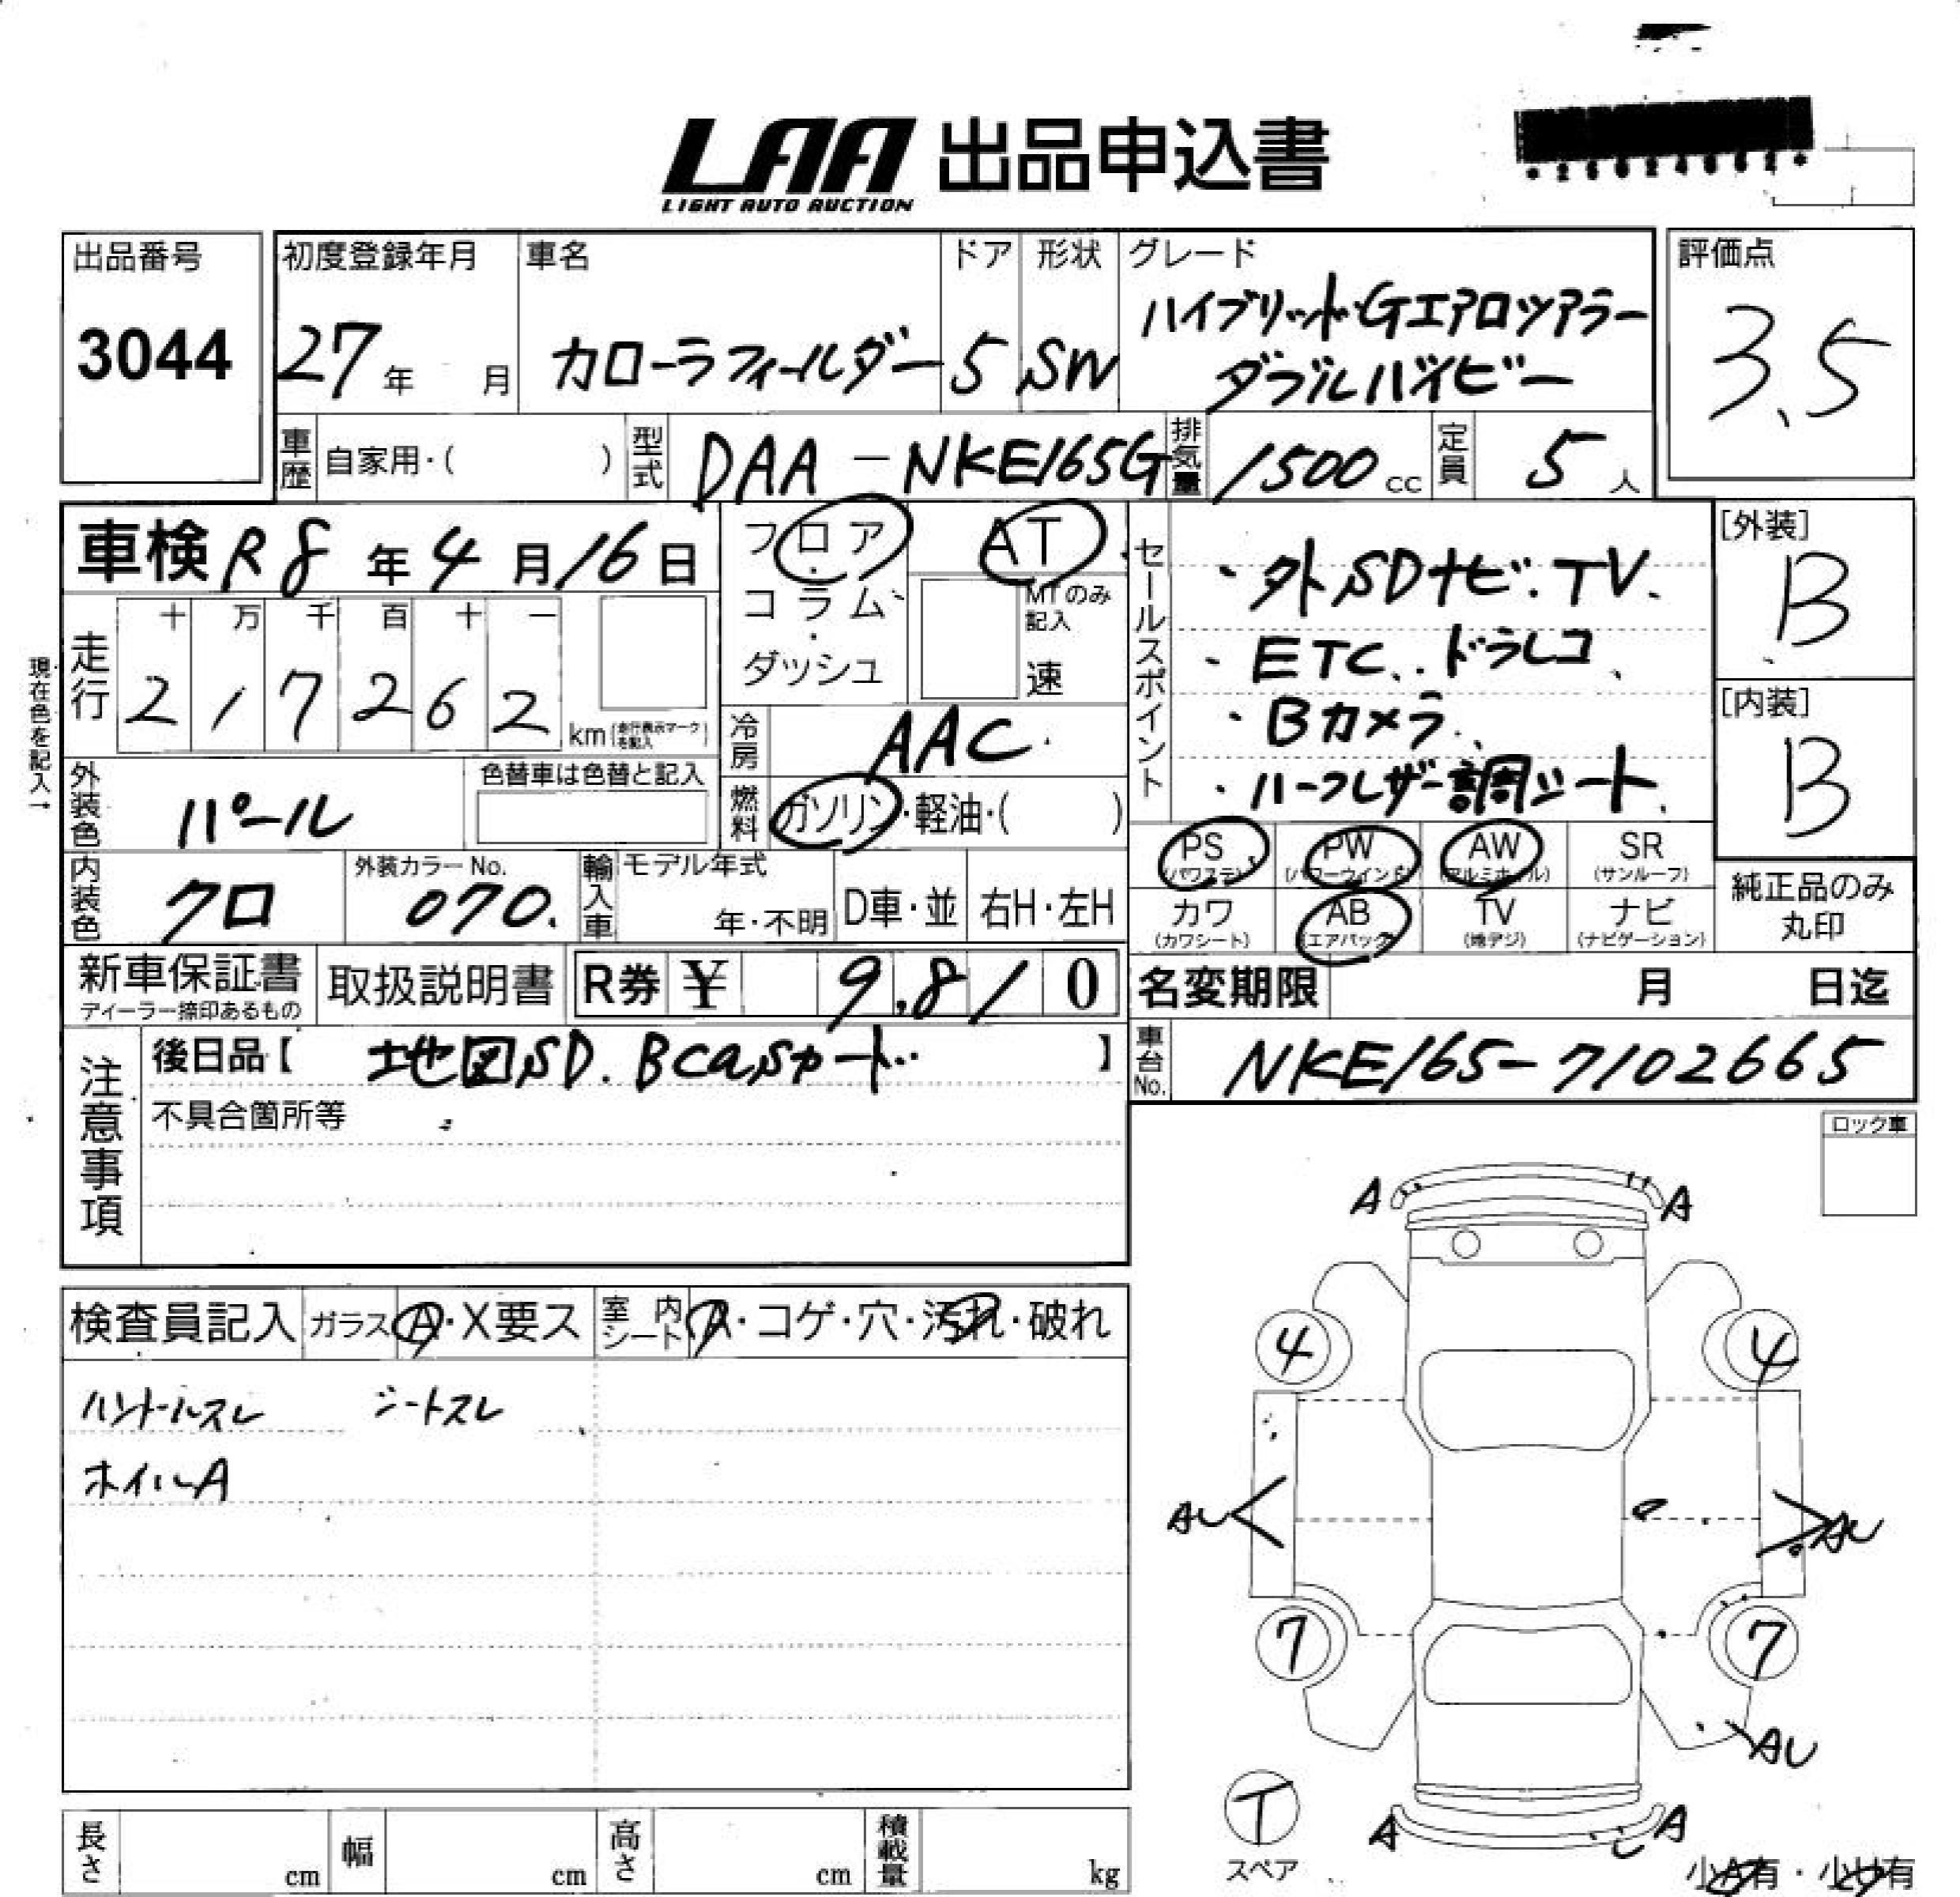 LAA 出品申込書
LIGHT AUTO AUCTION
出品番号
3044
初度登録年月
27年 月
車名
カローラフィールダー
ドア
5
形状
SW
グレード
ハイブリッド・Gエアロツアラー
ダブルバイビー
評価点
3.5
車歴 自家用・( )
型式 DAA-NKE165G
排気量 1500cc
定員 5人
車検 R8年4月16日
フロア・コラム・ダッシュ
AT
MTのみ記入
速
現在色を記入→
走行
十 万 千 百 十 一
2 1 7 2 6 2
km(走行表示マークを記入)
冷房 AAC
燃料 ガソリン・軽油・( )
セールスポイント
・外SDナビ.TV.
・ETC..ドラレコ、
・Bカメラ、
・ハーフレザー調シート.
[外装]
B
[内装]
B
外装色 パール
色替車は色替と記入
内装色 クロ
外装カラーNo.
070.
輸入車 モデル年式
年・不明
D車・並
右H・左H
PS (パワステ)
PW (パワーウインド)
AW (アルミホイル)
SR (サンルーフ)
カワ (カワシート)
AB (エアバック)
TV (地デジ)
ナビ (ナビゲーション)
純正品のみ
丸印
新車保証書
ディーラー捺印あるもの
取扱説明書
R券 ¥ 9,810
名変期限 月 日迄
注意事項
後日品【 地図SD.BCaSカード 】
車台No. NKE165-7102665
不具合箇所等
ロック車
検査員記入
ガラス A・X要ス
室内シート A・コゲ・穴・汚れ・破れ
ハンドルスレ シートスレ
ホイルA
A A
4 4
AU AU
7 7
AU
T
スペア
A A
小A有・小U有
長さ cm
幅 cm
高さ cm
積載量 kg